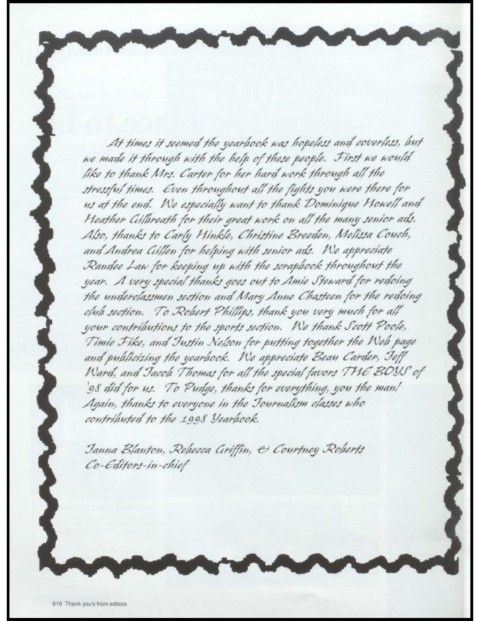 At times it seemed the yearbook was hopeless and coverless, but
we made it through with the help of these people. First we would
like to thank Mrs. Carter for her hard work through all the
stressful times. Even throughout all the fights you were there for
us at the end. We especially want to thank Dominique Howell and
Heather Gilbreath for their great work on all the many senior ads.
Also, thanks to Carly Hinkle, Christine Breeden, Melissa Couch,
and Andrea Gillen for helping with senior ads. We appreciate
Randee Law for keeping up with the scrapbook throughout the
year. A very special thanks goes out to Amie Steward for redoing
the underclassmen section and Mary Anne Chasteen for the redoing
club section. To Robert Phillips, thank you very much for all
your contributions to the sports section. We thank Scott Poole,
Timie Fike, and Justin Nelson for putting together the Web page
and publicizing the yearbook. We appreciate Beau Carder, Jeff
Ward, and Jacob Thomas for all the special favors THE BOYS of
'98 did for us. To Pudge, thanks for everything, you the man!
Again, thanks to everyone in the Journalism classes who
contributed to the 1998 Yearbook.
Janna Blanton, Rebecca Griffin, & Courtney Roberts
Co-Editors-in-chief
616 Thank you's from editors